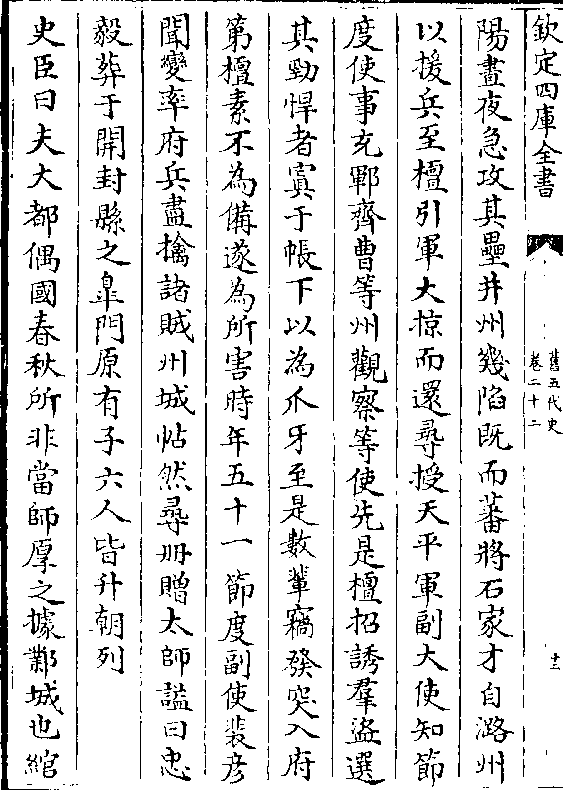 欽定四庫全書
舊五代史
卷二十二
十三
陽晝夜急攻其壘并州幾陷既而蕃將石家才自潞州
以援兵至檀引軍大掠而還尋授天平軍副大使知節
度使事充鄆齊曹等州觀察等使先是檀招誘羣盜選
其勁悍者寘于帳下以為爪牙至是數輩竊發突入府
第檀素不為備遂為所害時年五十一節度副使裴彦
聞變率府兵盡擒諸賊州城帖然尋册贈太師諡曰忠
毅葬于開封縣之臯門原有子六人皆升朝列
史臣曰夫大都偶國春秋所非當師厚之據鄴城也綰